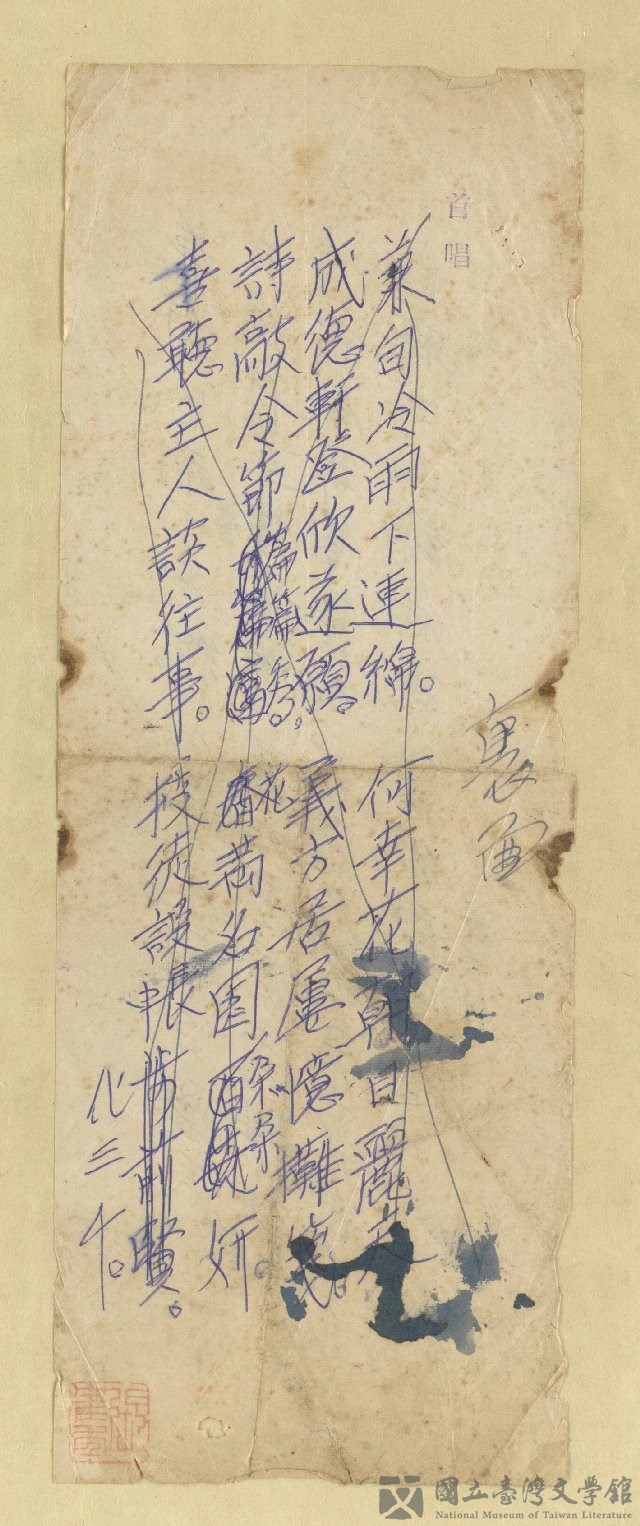 首唱
裏面
兼旬冷雨下連綿。何幸花朝日麗天
成德軒登欣遂願。義方居屢憶攤箋。
詩敲令節篇篇秀。花滿名園朵朵妍。
喜聽主人談往事。授徒設帳前賢。
化三千。
國立臺灣文學館
National Museum of Taiwan Literature